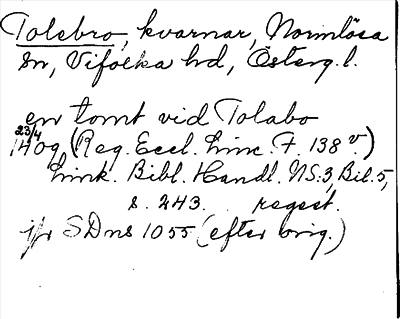 Tolebro, kvarnar, Normlösa
sn, Vifolka hd, Österg. l.
en tomt vid Tolabo
23/4
1409 (Reg. Eccl. Linc. F. 138 v.)
Link. Bibl. Handl. NS.3, Bil. 5,
s. 243. regest.
jfr SDns 1055 (efter orig.)